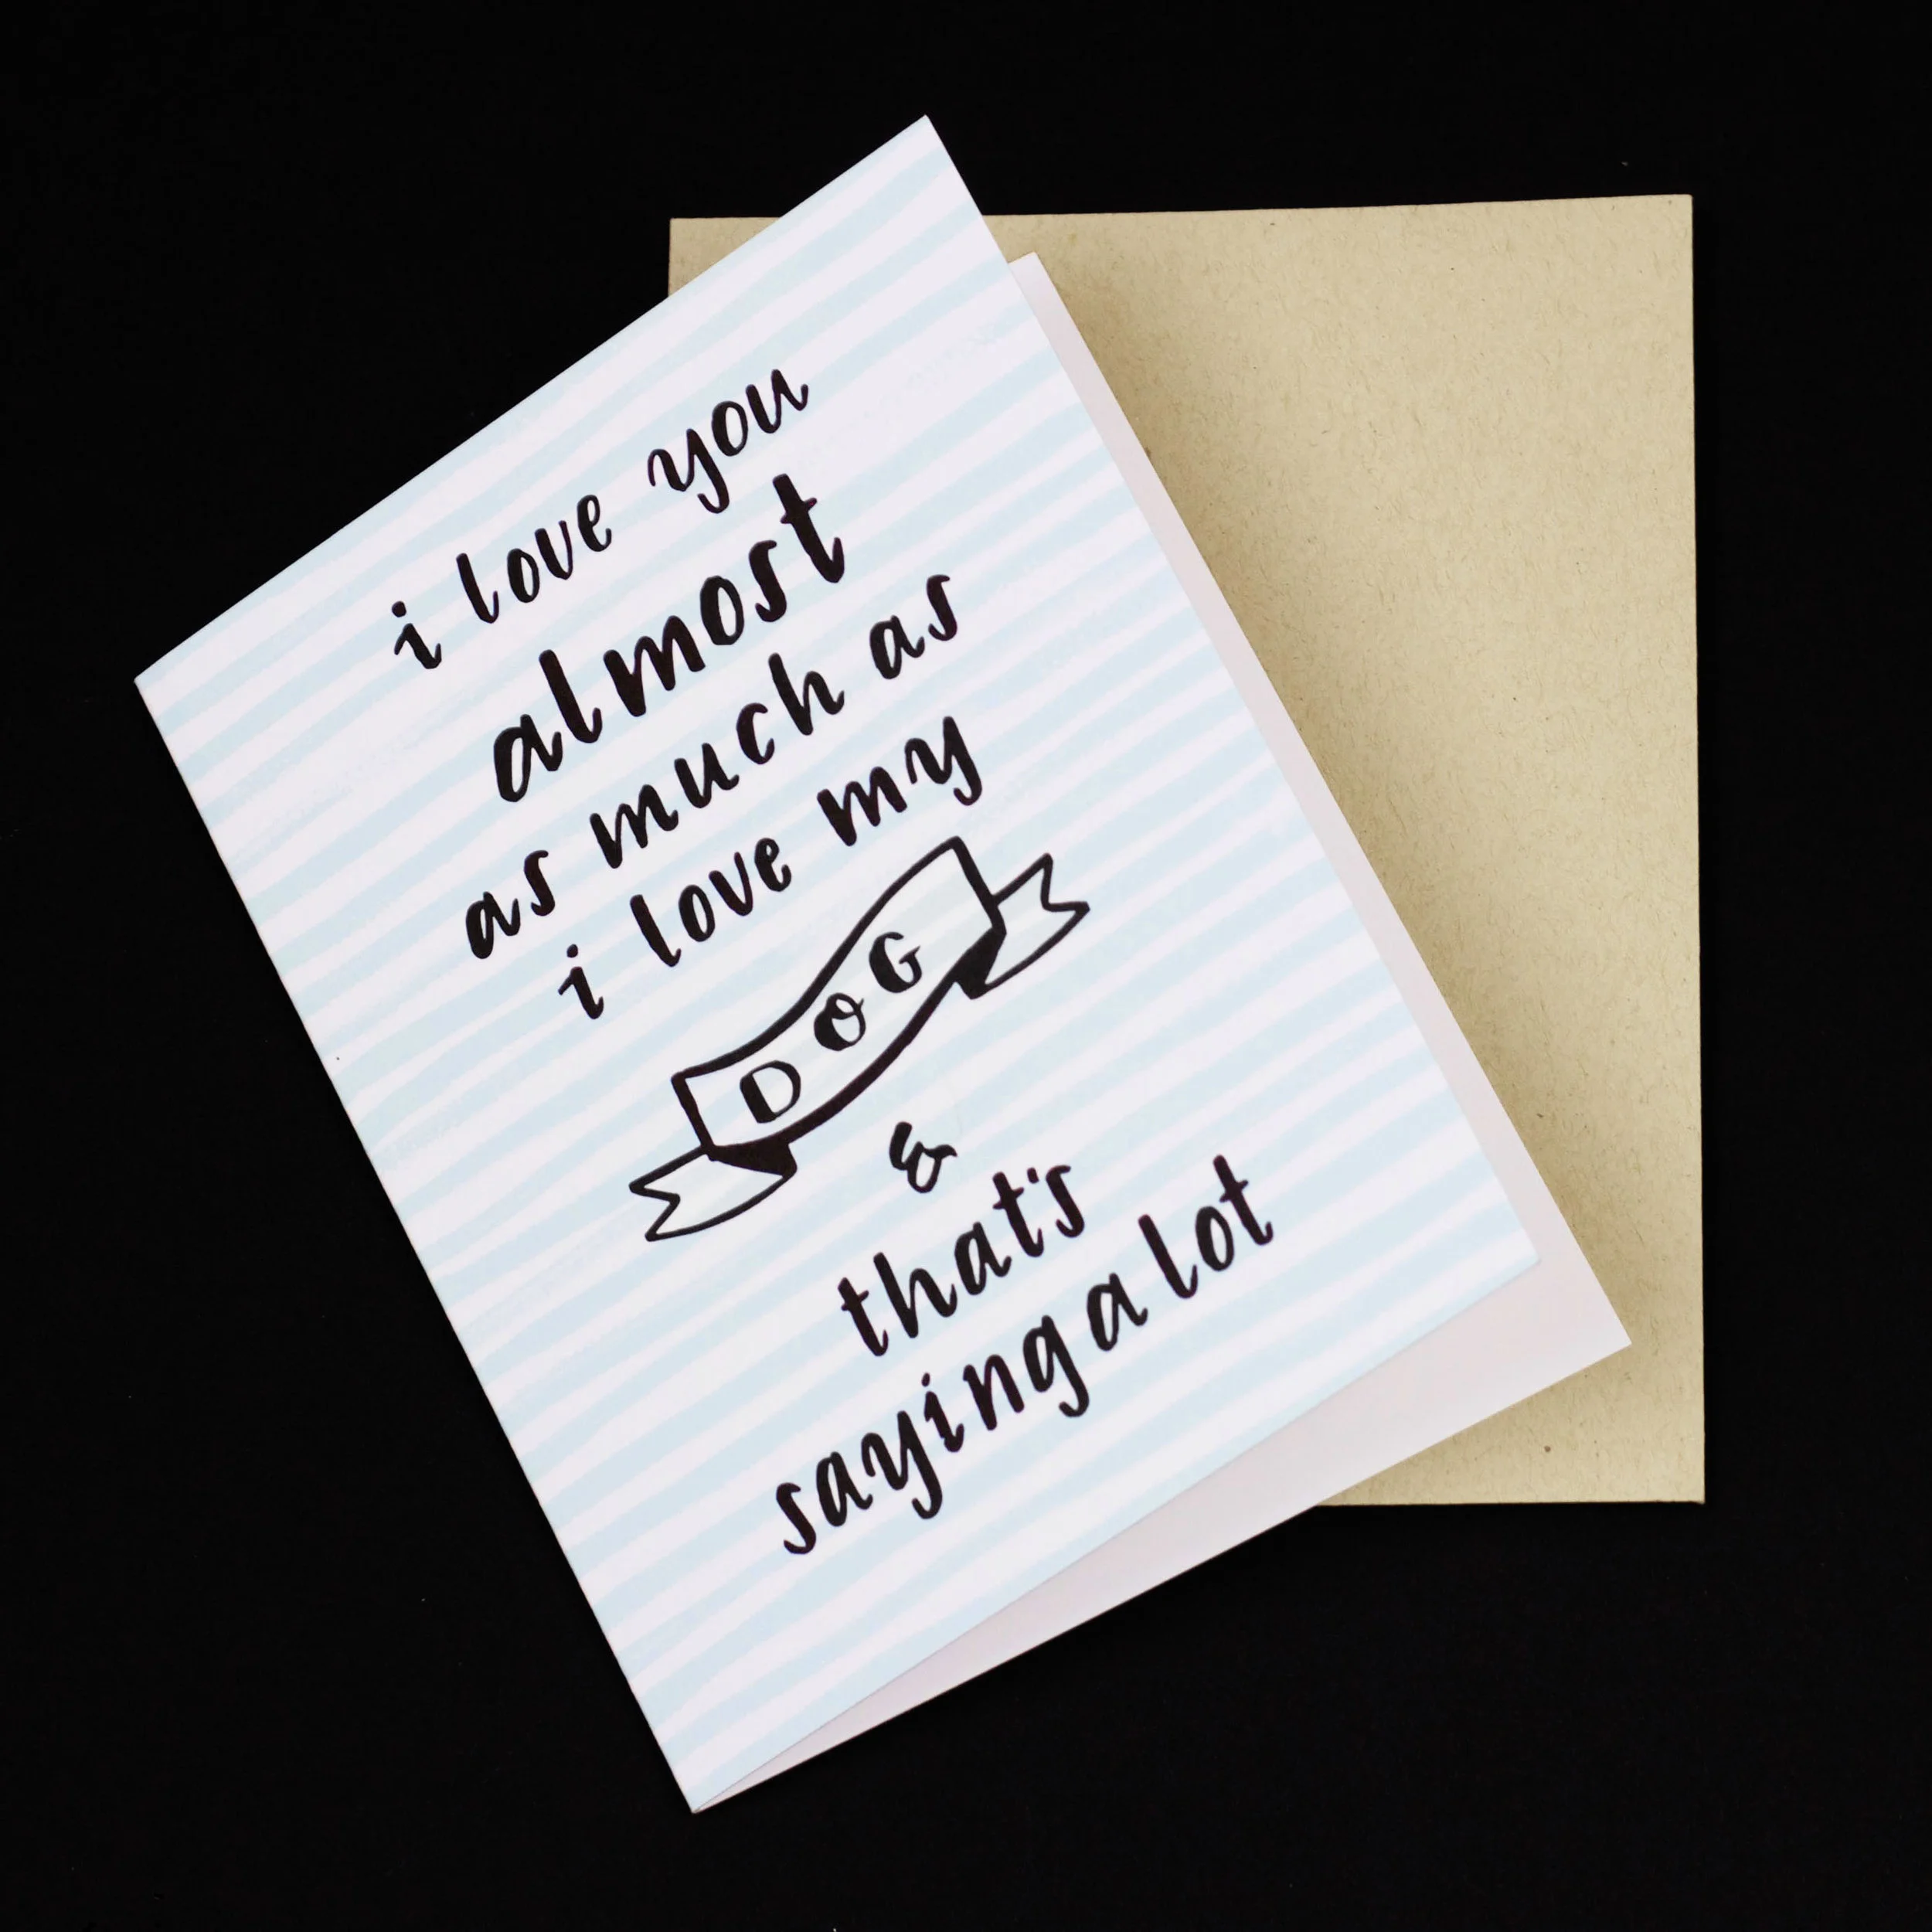 i love you
almost
as much as
i love my
DOG
&
that's
saying a lot